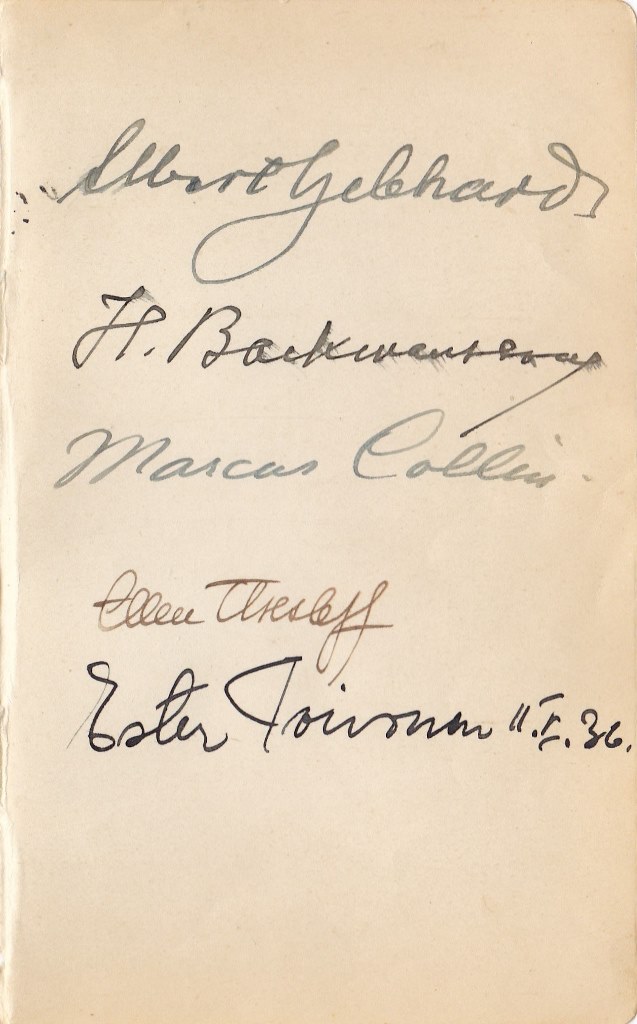 Albert Gebhard
H. Backmansson
Marcus Collin
Ellen Thesleff
Ester Toivonen 11.I.36.